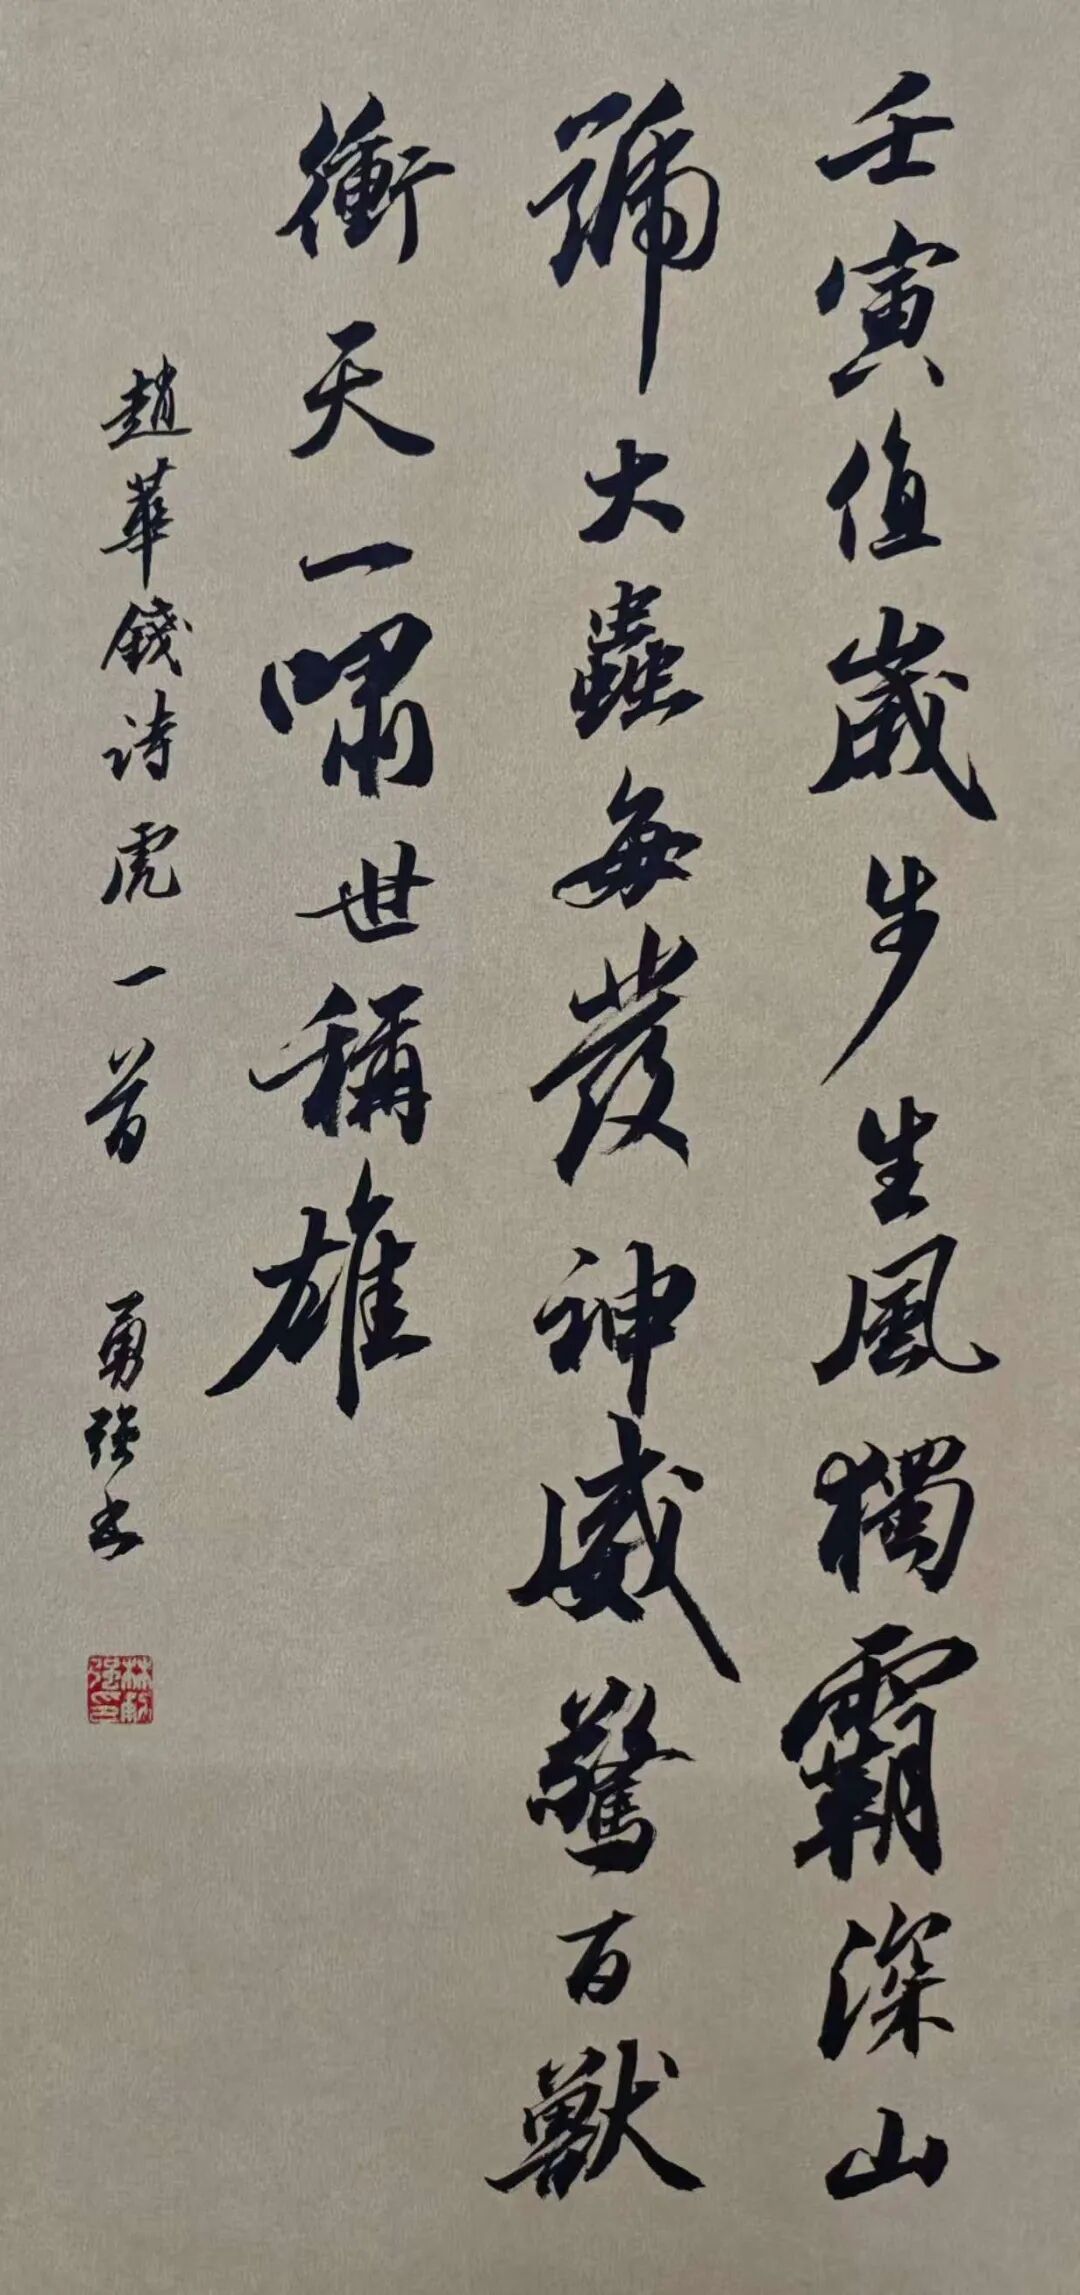 壬寅值歲步生風獨霸深山
號大蟲每發神威驚百獸
衝天一嘯世稱雄
趙華錢诗虎一首 勇强书
林勇强印